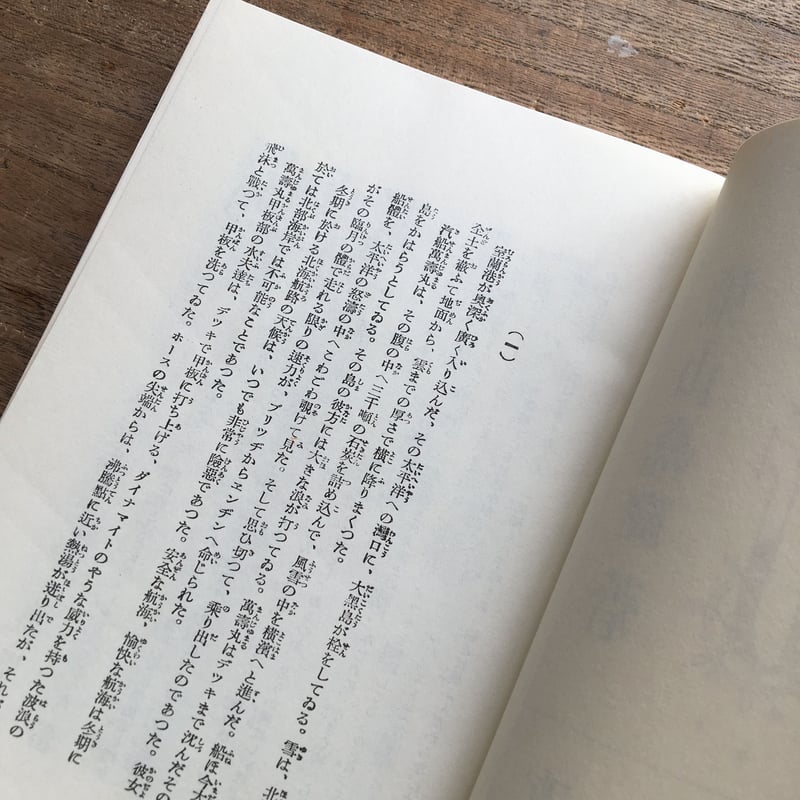 (一)
室蘭港が奥深く廣く入り込んだ、その太平洋への灣口に、大黑島が栓をしてゐる。雪は、北
全土を蔽ふて地面から、雲までの厚さで横に降りまくつた。
汽船萬壽丸は、その腹の中へ三千噸の石炭を詰め込んで、風雪の中を横濱へと進んだ。船は今大
島をかはらうとしてゐる。その島の彼方には大きな浪が打つてゐる。萬壽丸はデッキまで沈んだその
船體を、太平洋の怒濤の中へこわごわ覗けて見た。そして思ひ切つて、乗り出したのであつた。彼女
がその臨月の體で走れる限りの速力が、ブリッヂからエンヂンへ命じられた。
冬期に於ける北海航路の天候は、いつでも非常に險惡であつた。安全な航海、愉快な航海は冬期に
於ては北部海岸では不可能なことであつた。
萬壽丸甲板部の水夫達は、デッキで甲板に打ち上げる、ダイナマイトのやうな威力を持つた波浪の
飛沫と戰つて、甲板を洗つてゐた。ホースの先端からは、沸騰點に近い熱湯が迸り出たが、それ